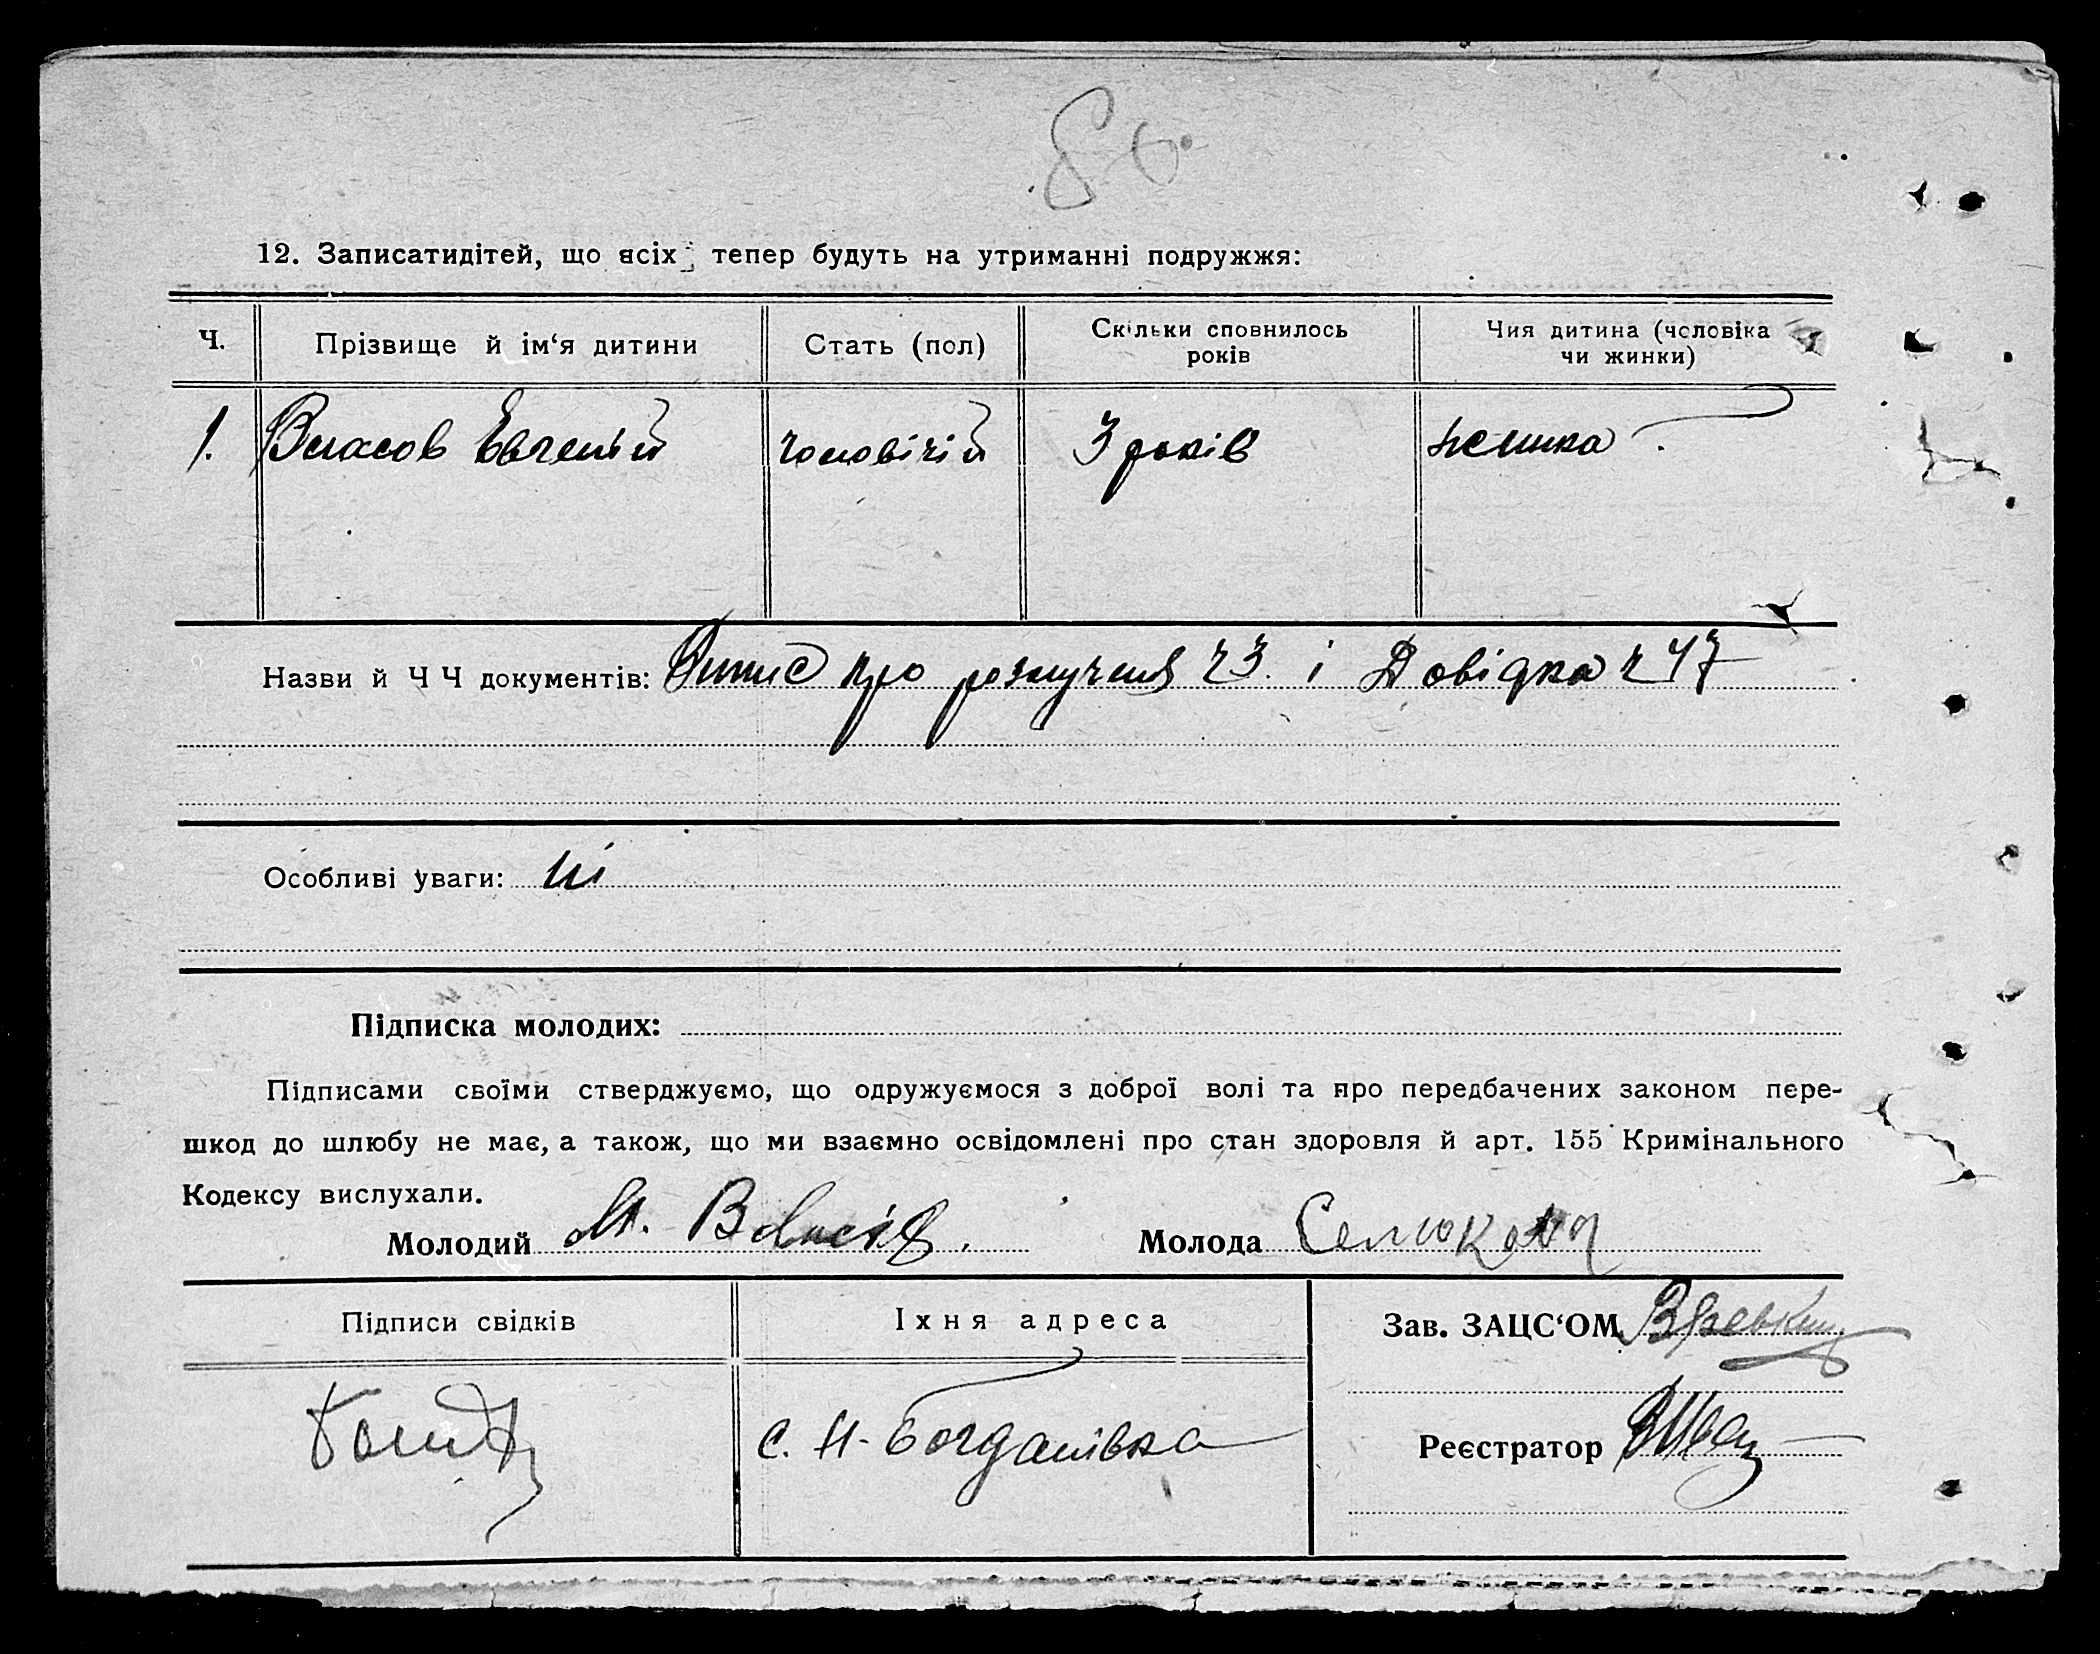 86.
12. Записатидітей, що всіх тепер будуть на утриманні подружжя:
Ч. Прізвище й ім‘я дитини Стать (пол) Скільки сповнилось років Чия дитина (чоловіка чи жинки)
1. Власов Евгеній чоловічій 3 років жінка
Назви й Ч Ч документів: Витис про розлученя ч 3. і Довідка ч 47
Особливі уваги: ні
Підписка молодих:
Підписами своїми стверджуємо, що одружуємося з доброї волі та про передбачених законом пере-
шкод до шлюбу не має, а також, що ми взаємно освідомлені про стан здоровля й арт. 155 Кримінального
Кодексу вислухали.
Молодий Молода Селюкова
Підписи свідків Іхня адреса Зав. ЗАЦС‘ОМ
с. Н-Богданівка Реєстратор ВШвец